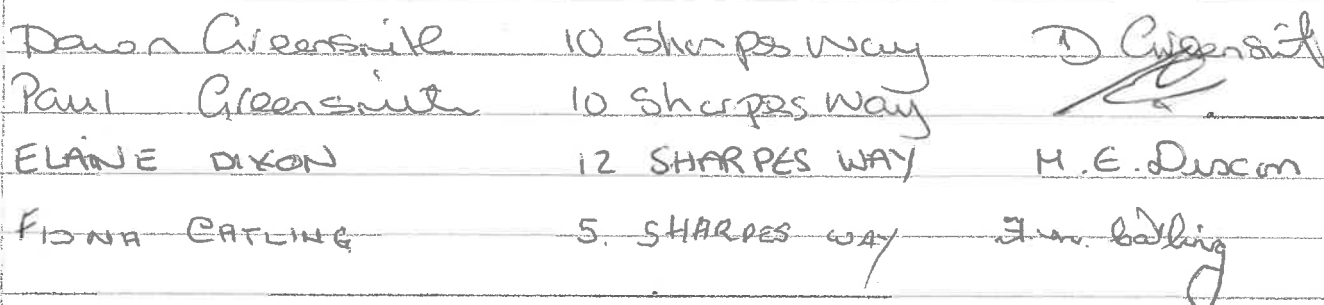 Greensmith 10 Sharpes Way D Greensmith
Paul Greensmith 10 Sharpes Way
ELAINE DIXON 12 SHARPES WAY M.E. Dixon
FIONA CATLING 5. SHARPES WAY Catling